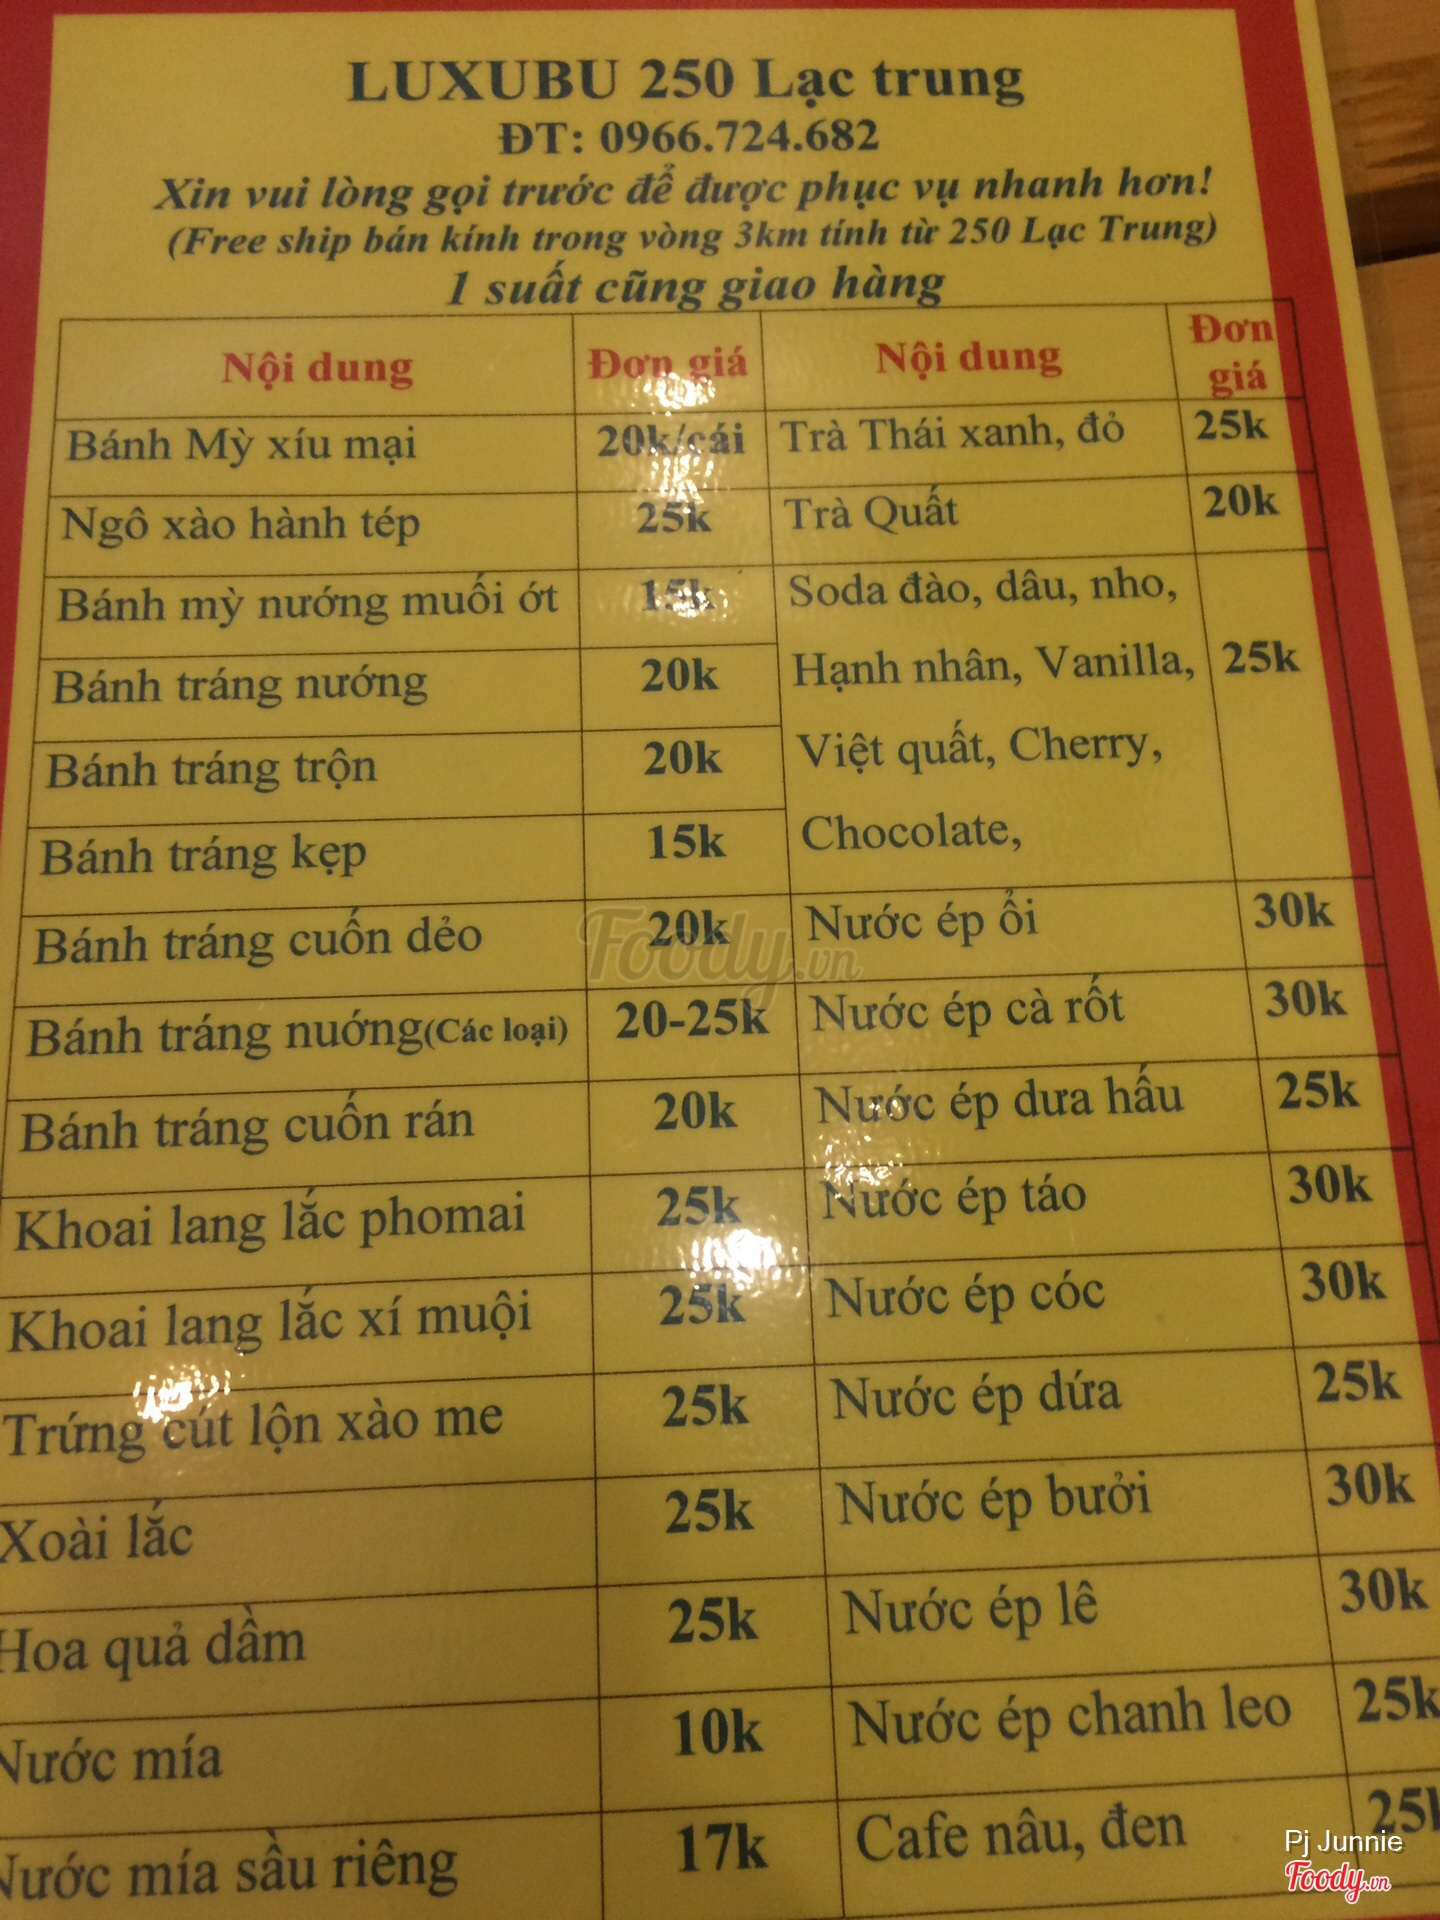 LUXUBU 250 Lạc trung
ĐT: 0966.724.682
Xin vui lòng gọi trước để được phục vụ nhanh hơn!
(Free ship bán kính trong vòng 3km tính từ 250 Lạc Trung)
1 suất cũng giao hàng
Nội dung Đơn giá Nội dung Đơn giá
Bánh Mỳ xíu mại 20k/cái Trà Thái xanh, đỏ 25k
Ngô xào hành tép 25k Trà Quất 20k
Bánh mỳ nướng muối ớt 15k Soda đào, dâu, nho,
Bánh tráng nướng 20k Hạnh nhân, Vanilla, 25k
Bánh tráng trộn 20k Việt quất, Cherry,
Bánh tráng kẹp 15k Chocolate,
Bánh tráng cuốn dẻo 20k Nước ép ổi 30k
Bánh tráng nuớng(Các loại) 20-25k Nước ép cà rốt 30k
Bánh tráng cuốn rán 20k Nước ép dưa hấu 25k
Khoai lang lắc phomai 25k Nước ép táo 30k
Khoai lang lắc xí muội 25k Nước ép cóc 30k
Trứng cút lộn xào me 25k Nước ép dứa 25k
Xoài lắc 25k Nước ép bưởi 30k
Hoa quả dầm 25k Nước ép lê 30k
Nước mía 10k Nước ép chanh leo 25k
Nước mía sầu riêng 17k Cafe nâu, đen 25k
Foody.vn
Pj Junnie
Foody.vn